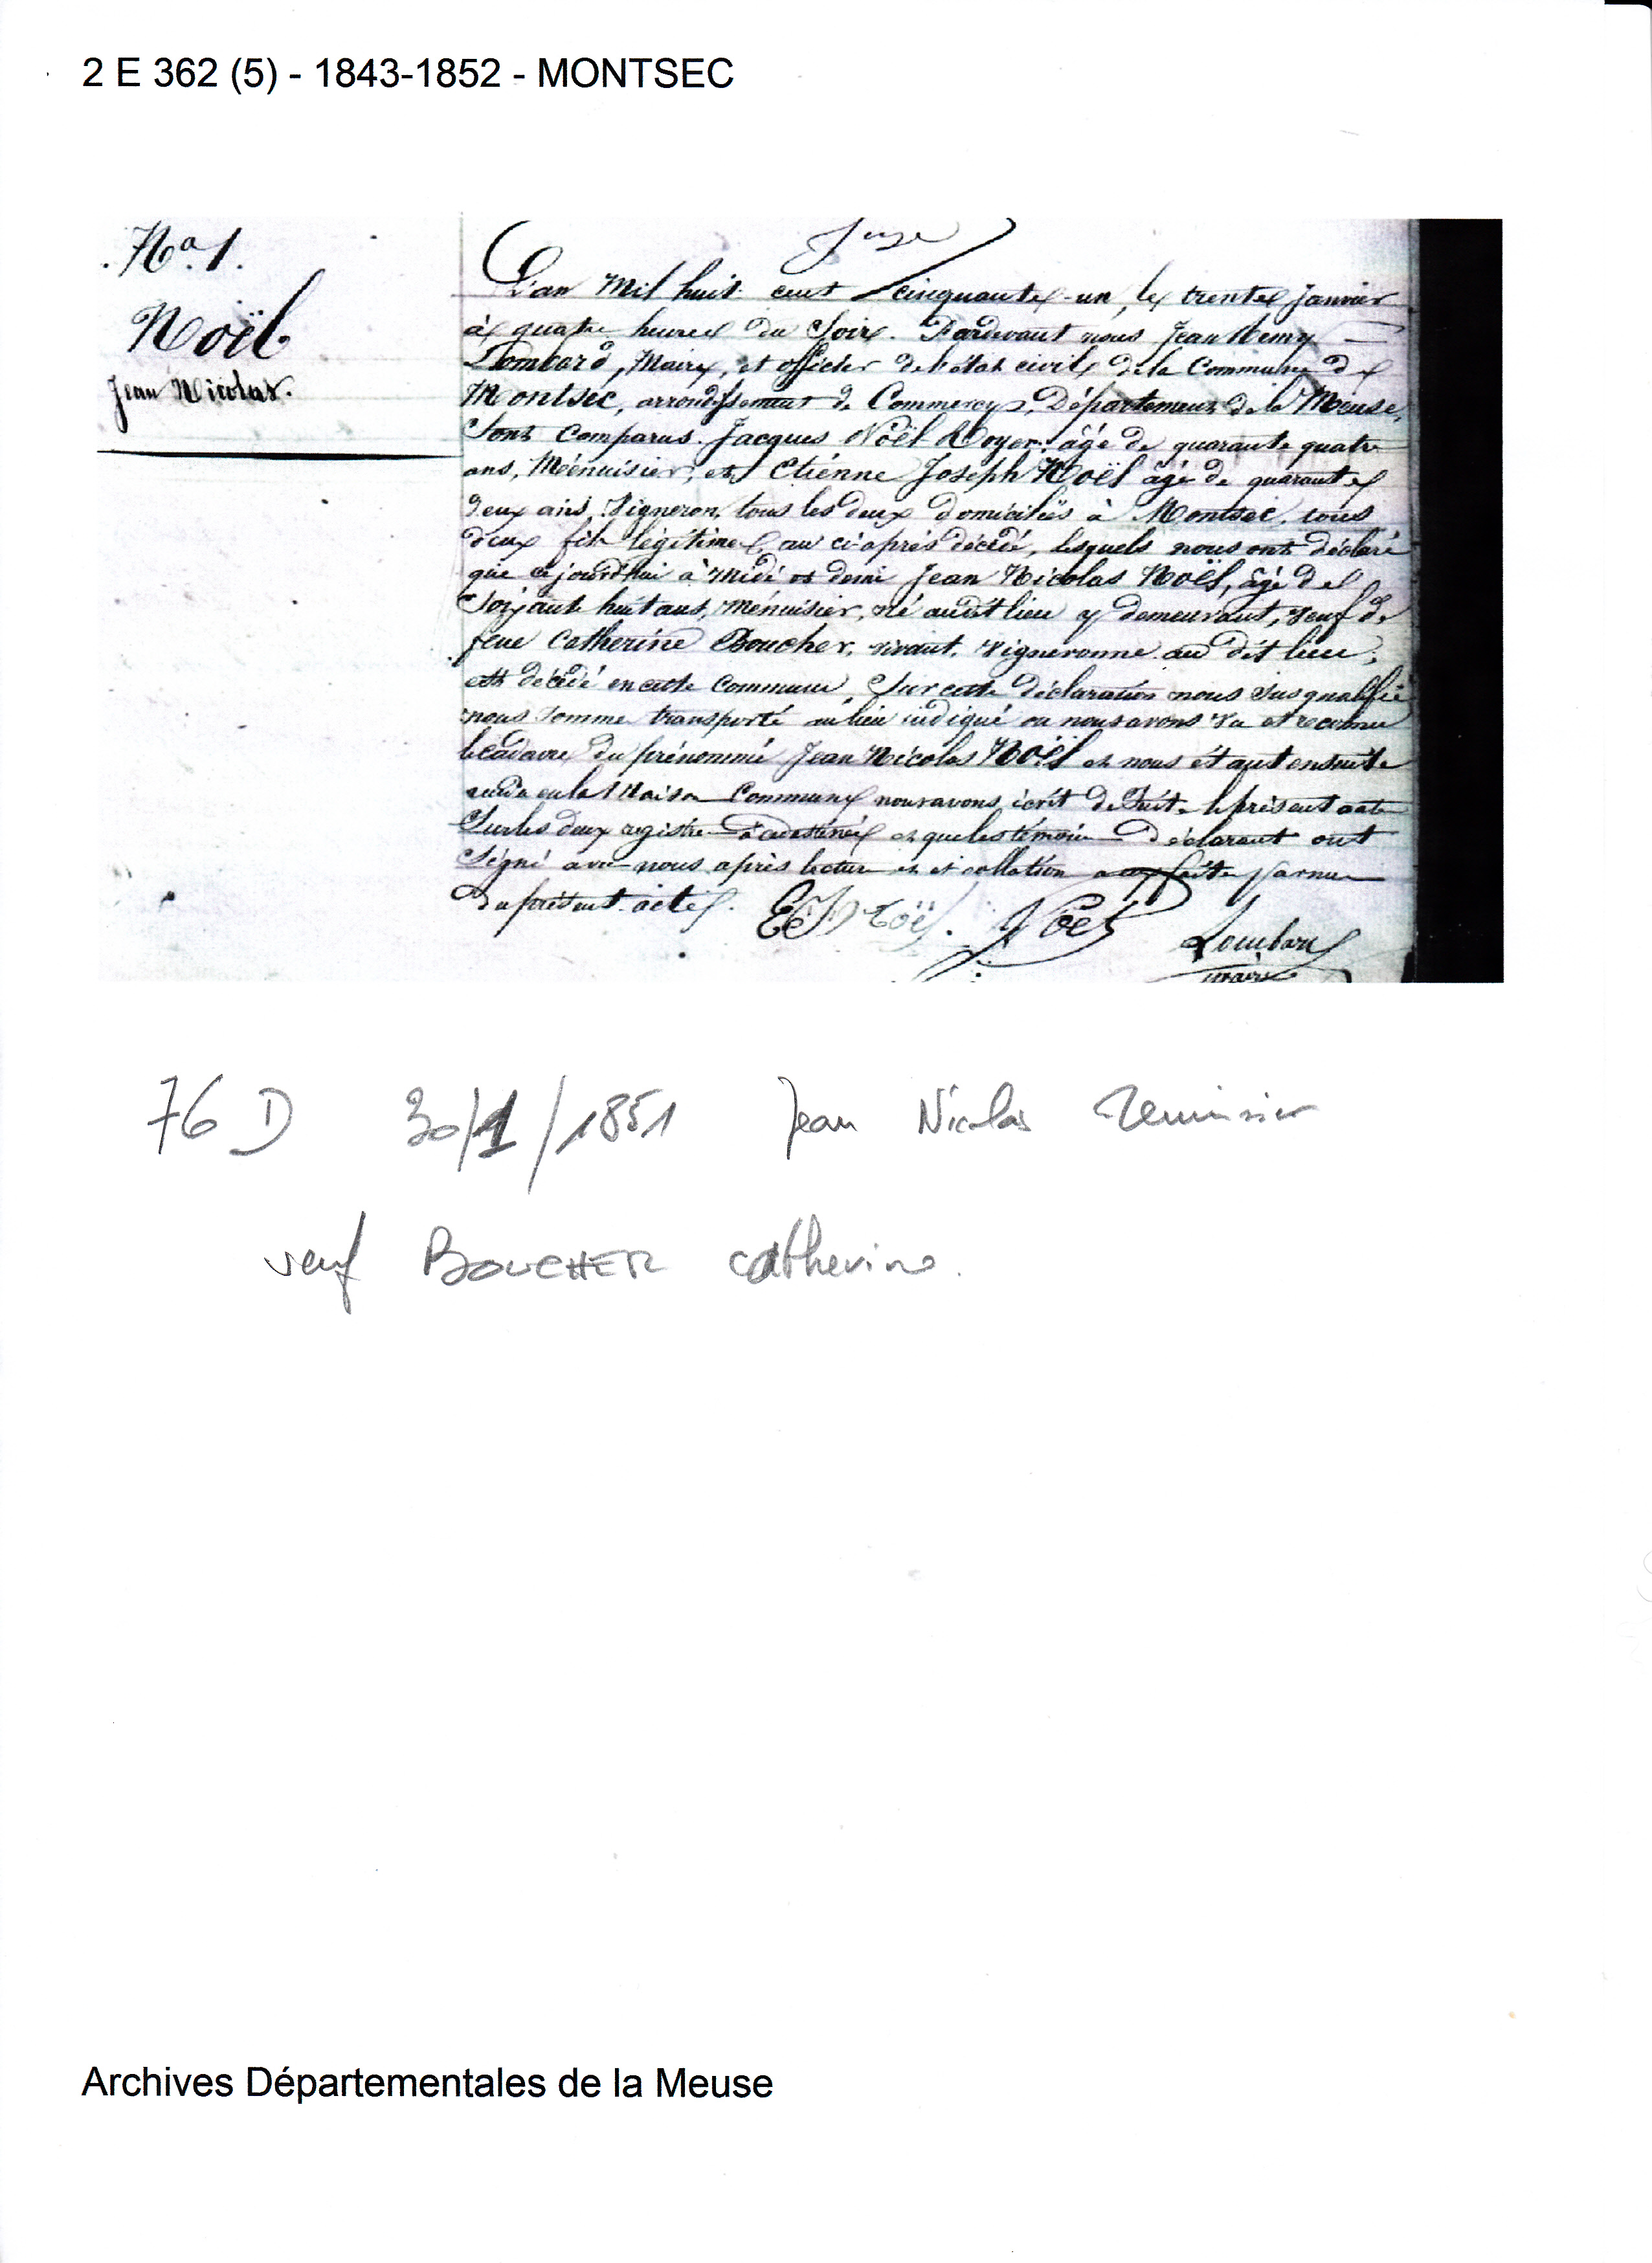 2 E 362 (5) - 1843-1852 - MONTSEC
Nº 1.
Noël
Jean Nicolas.
Juge
L'an Mil huit cent cinquante-un, le trente Janvier
à quatre heures du Soir. Pardevant nous Jean Remy
Lombard, Maire, et officier de l'état civil de la Commune de
Montsec, arrondissement de Commercy, Département de la Meuse,
Sont Comparus. Jacques Noël Royer, âgé de quarante quatre
ans, Ménuisier, et Etiénne Joseph Noël âgé de quarante
deux ans, Vigneron, tous les deux domiciliés à Montsec, tous
deux fils légitimes au ci-après décédé, lesquels nous ont déclaré
que cejourd'hui à midi et demi Jean Nicolas Noël, âgé de
Soixante huit ans, Ménuisier, né audit lieu y demeurant, veuf de
feue Catherine Boucher, vivant, Vigneronne au dit lieu,
est décédé en cette Commune, Sur cette déclaration nous Susqualifié
nous Somme transporté au lieu indiqué ou nous avons vu et reconnu
le cadavre du prénommé Jean Nicolas Noël et nous étant ensuite
rendu en la Maison Commune nous avons écrit de Suite le présent acte
Sur les deux registre à ce destinés et que les témoins Déclarant ont
Signé avec nous après lecture et collation faite par nous
du présent acte.
EJ Noël. Noël Lombard
maire
76 D 30/1/1851 Jean Nicolas Menuisier
veuf BOUCHER Catherine.
Archives Départementales de la Meuse